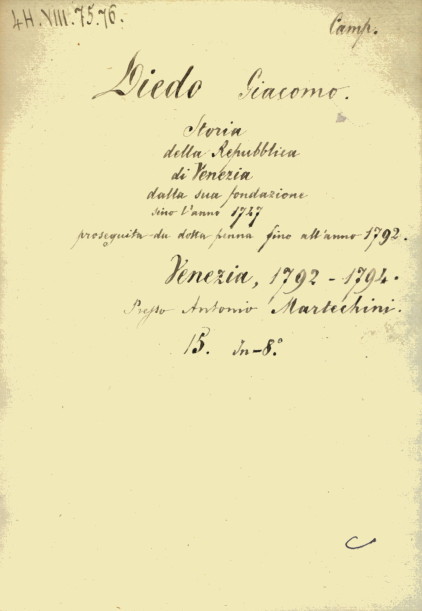 4H.XIII.75.76.
Camp.
Diedo Giacomo.
Storia
della Repubblica
di Venezia
dalla sua fondazione
sino l'anno 1747
proseguita da dotta penna fino all'anno 1792.
Venezia, 1792-1794.
Presso Antonio Martechini.
15. In-8°